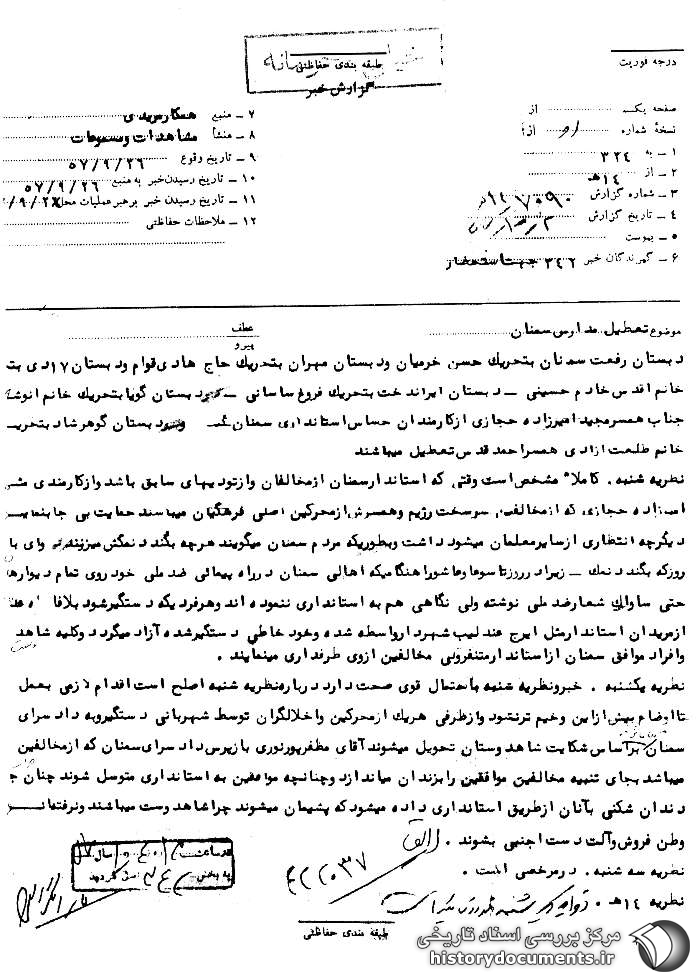 طبقه بندی حفاظتی
گزارش خبر
درجه فوریت
صفحه یک از
نسخهٔ شماره از
۱ ــ به ۳۲۴
۲ ــ از ۱۴هـ
۳ ــ شماره گزارش ۷۰۹۰ /۱۴هـ
۴ ــ تاریخ گزارش
۵ ــ پیوست
۶ ــ گیرندگان خبر ۳۴۲ جهت استحضار
۷ ــ منبع همکار مریدی
۸ ــ منشأ مشاهدات و مسموعات
۹ ــ تاریخ وقوع ۵۷/۹/۲۶
۱۰ ــ تاریخ رسیدن خبر به منبع ۵۷/۹/۲۶
۱۱ ــ تاریخ رسیدن خبر برهبر عملیات محل
۱۲ ــ ملاحظات حفاظتی
موضوع تعطیل مدارس سمنان
عطف
پیرو
دبستان رفعت سمنان بتحریك حسن خرمیان ودبستان مهران بتحریك حاج هادی قوام ودبستان ۱۷دی بت
خانم اقدس خادم حسینی ــ دبستان ایراندخت بتحریك فروغ ساسانی ــ دبستان گویا بتحریك خانم انوشه
جناب همسرمجید امیرزاده حجازی ازکارمندان حساس استانداری سمنان دبستان گوهرشاد بتحریـ
خانم طلعت ازادی همسراحمد قدس تعطیل میباشند
نظریه شنبه . کاملاً مشخص است وقتی که استاندارسمنان ازمخالفان وازتودیهای سابق باشد وازکارمندی مثـ
امیرزاده حجازی که ازمخالفین سرسخت رژیم وهمسرش ازمحرکین اصلی فرهنگیان میباسند حمایت بی جابنمایـ
دیگرچه انتظاری ازسایرمعلمان میشود داشت وبطوریکه مردم سمنان میگویند هرچه بگندد نمکش میزنند وای با
روزکه بگندد نمك ــ زیرا درروزتاسوعا وعاشورا هنگامیکه اهالی سمنان درراه پیمائی ضد ملی خود روی تمام دیوارها
حتی ساواك شعارضد ملی نوشته ولی نگاهی هم به استانداری ننموده اند وهرفردیکه دستگیرشود بلافا
ازمریدان استاندارمثل ایرج عندلیب شهردارواسطه شده وخود خاطی دستگیرشده آزاد میگردد وکلیه شاهد وست
وافراد موافق سمنان ازاستاندارمتنفرولی مخالفین ازوی طرفداری مینمایند .
نظریه یکشنبه . خبرونظریه شنبه باحتمال قوی صحت دارد درباره نظریه شنبه اصلح است اقدام لازمی بعمل
تا اوضاع بیش ازاین وخیم ترنشود وازطرفی هریك ازمحرکین واخلالگران توسط شهربانی دستگیروبه دادسرای
سمنان براساس شکایت شاهدوستان تحویل میشوند آقای مظفرپورنوری بازپرس دادسرای سمنان که ازمخالفین
میباشد بجای تنبیه مخالفین موافقین رابزندان میاندازد وچنانچه موافقین به استانداری متوسل شوند چنان ج
دندان شکنی بآنان ازطریق استانداری داده میشود که پشیمان میشوند چرا شاهدوست میباشند ونرفته انـ
وطن فروش وآلت دست اجنبی بشوند .
نظریه سه شنبه . درمرخصی است .
نظریه ۱۴هـ .
۴۲۲۰۳۷
طبقه بندی حفاظتی
مرکز بررسی اسناد تاریخی
historydocuments.ir